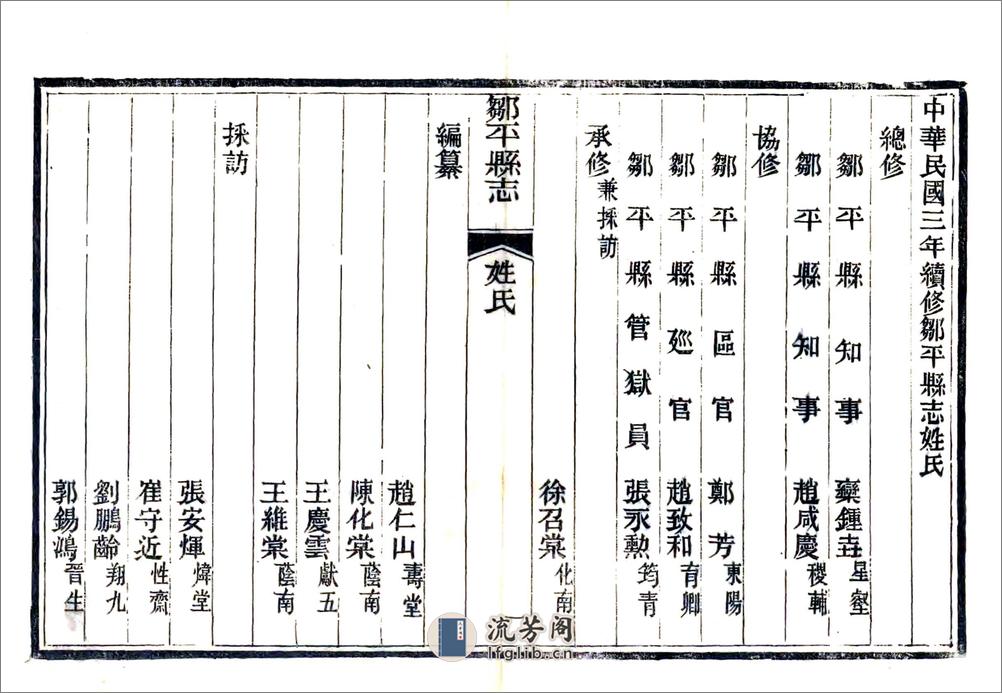 中華民國三年續修鄒平縣志姓氏
總修
鄒平縣知事 欒鍾垚 星壑
鄒平縣知事 趙咸慶 稷輔
協修
鄒平縣區官 鄭芳 東陽
鄒平縣巡官 趙致和 育卿
鄒平縣管獄員 張永勲 筠青
承修兼採訪
徐召棠 化南
鄒平縣志
姓氏
編纂
趙仁山 壽堂
陳化棠 蔭南
王慶雲 獻五
王維棠 蔭南
採訪
張安煇 煒堂
崔守近 性齋
劉鵬齡 翔九
郭錫鴻 晉生
流芳阁
lfglib.cn